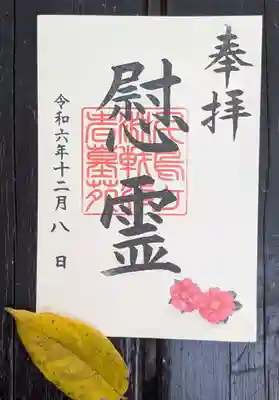 奉拝
慰霊
令和六年十二月八日